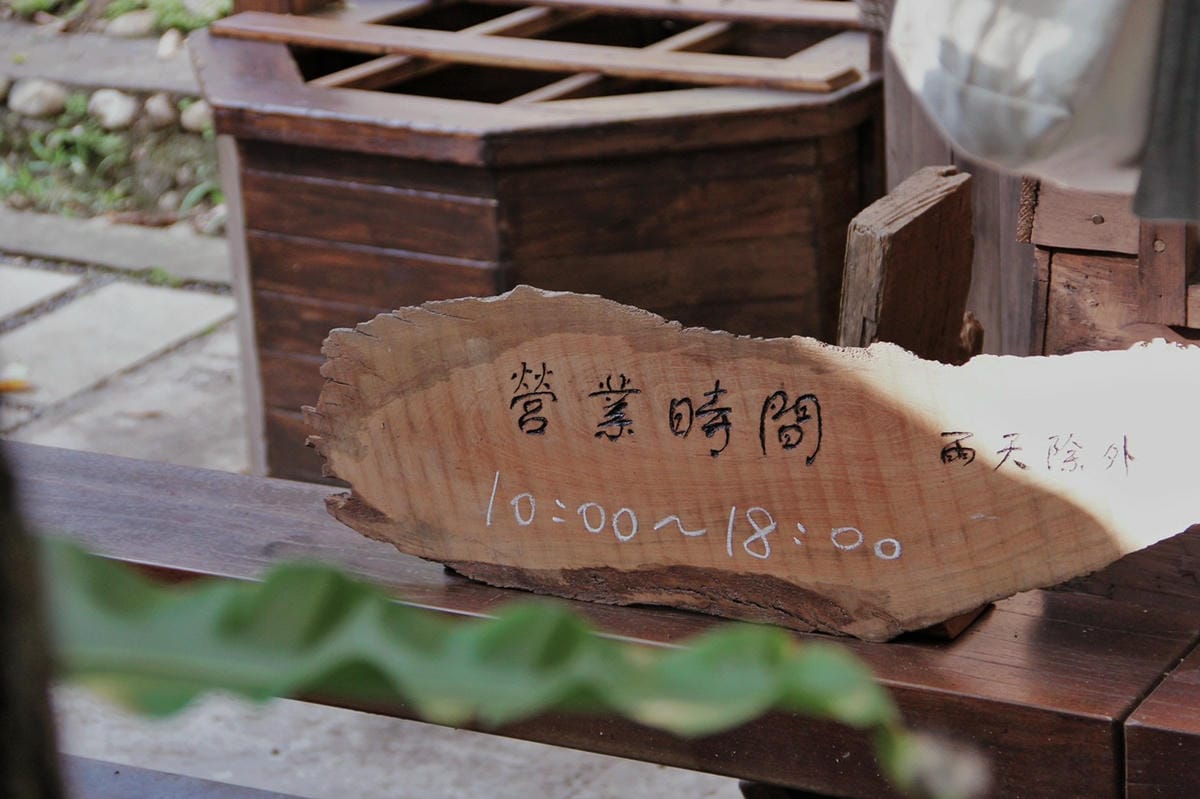 營業時間
雨天除外
10:00~18:00